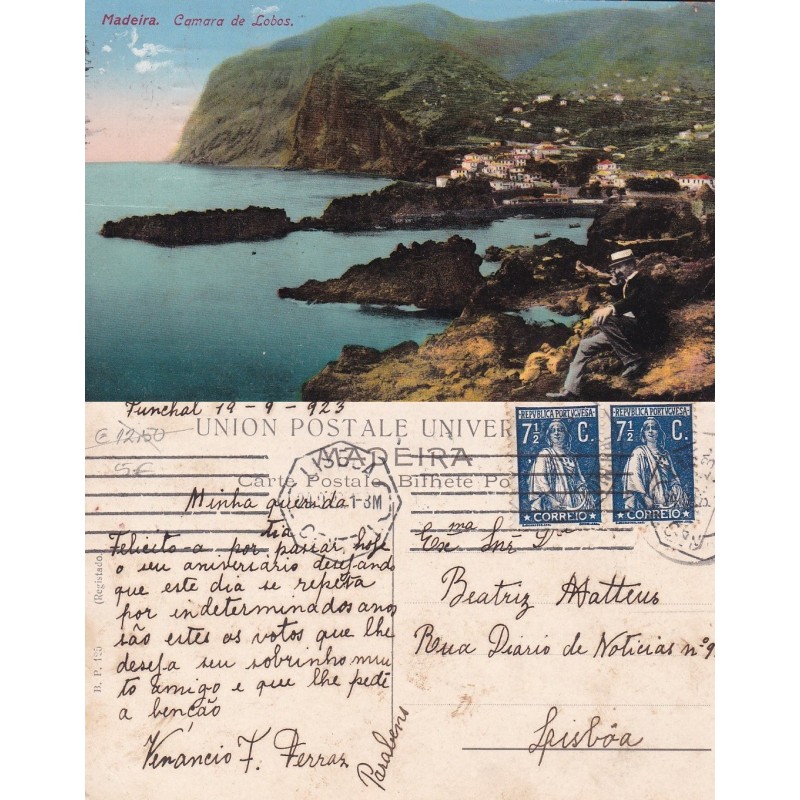 Madeira. Camara de Lobos.
Funchal 19-9-923
€ 12,50
5€
UNION POSTALE UNIVER
MADEIRA
Carte Postale Bilhete Po
REPVBLICA PORTVGVESA
7½ C.
CORREIO
REPVBLICA PORTVGVESA
7½ C.
CORREIO
LISBOA
1-3M
Minha querida
tia
Felicito-a por passar hoje
o seu aniversario desejando
que este dia se repeta
por indeterminados anos
são estes os votos que lhe
deseja seu sobrinho mui
to amigo e que lhe pede
a benção
Venancio F. Ferraz
Parabens
Exma Snrª D.
Beatriz Matteus
Rua Diario de Noticias nº9
Lisbôa
B. P. 125 (Registado.)